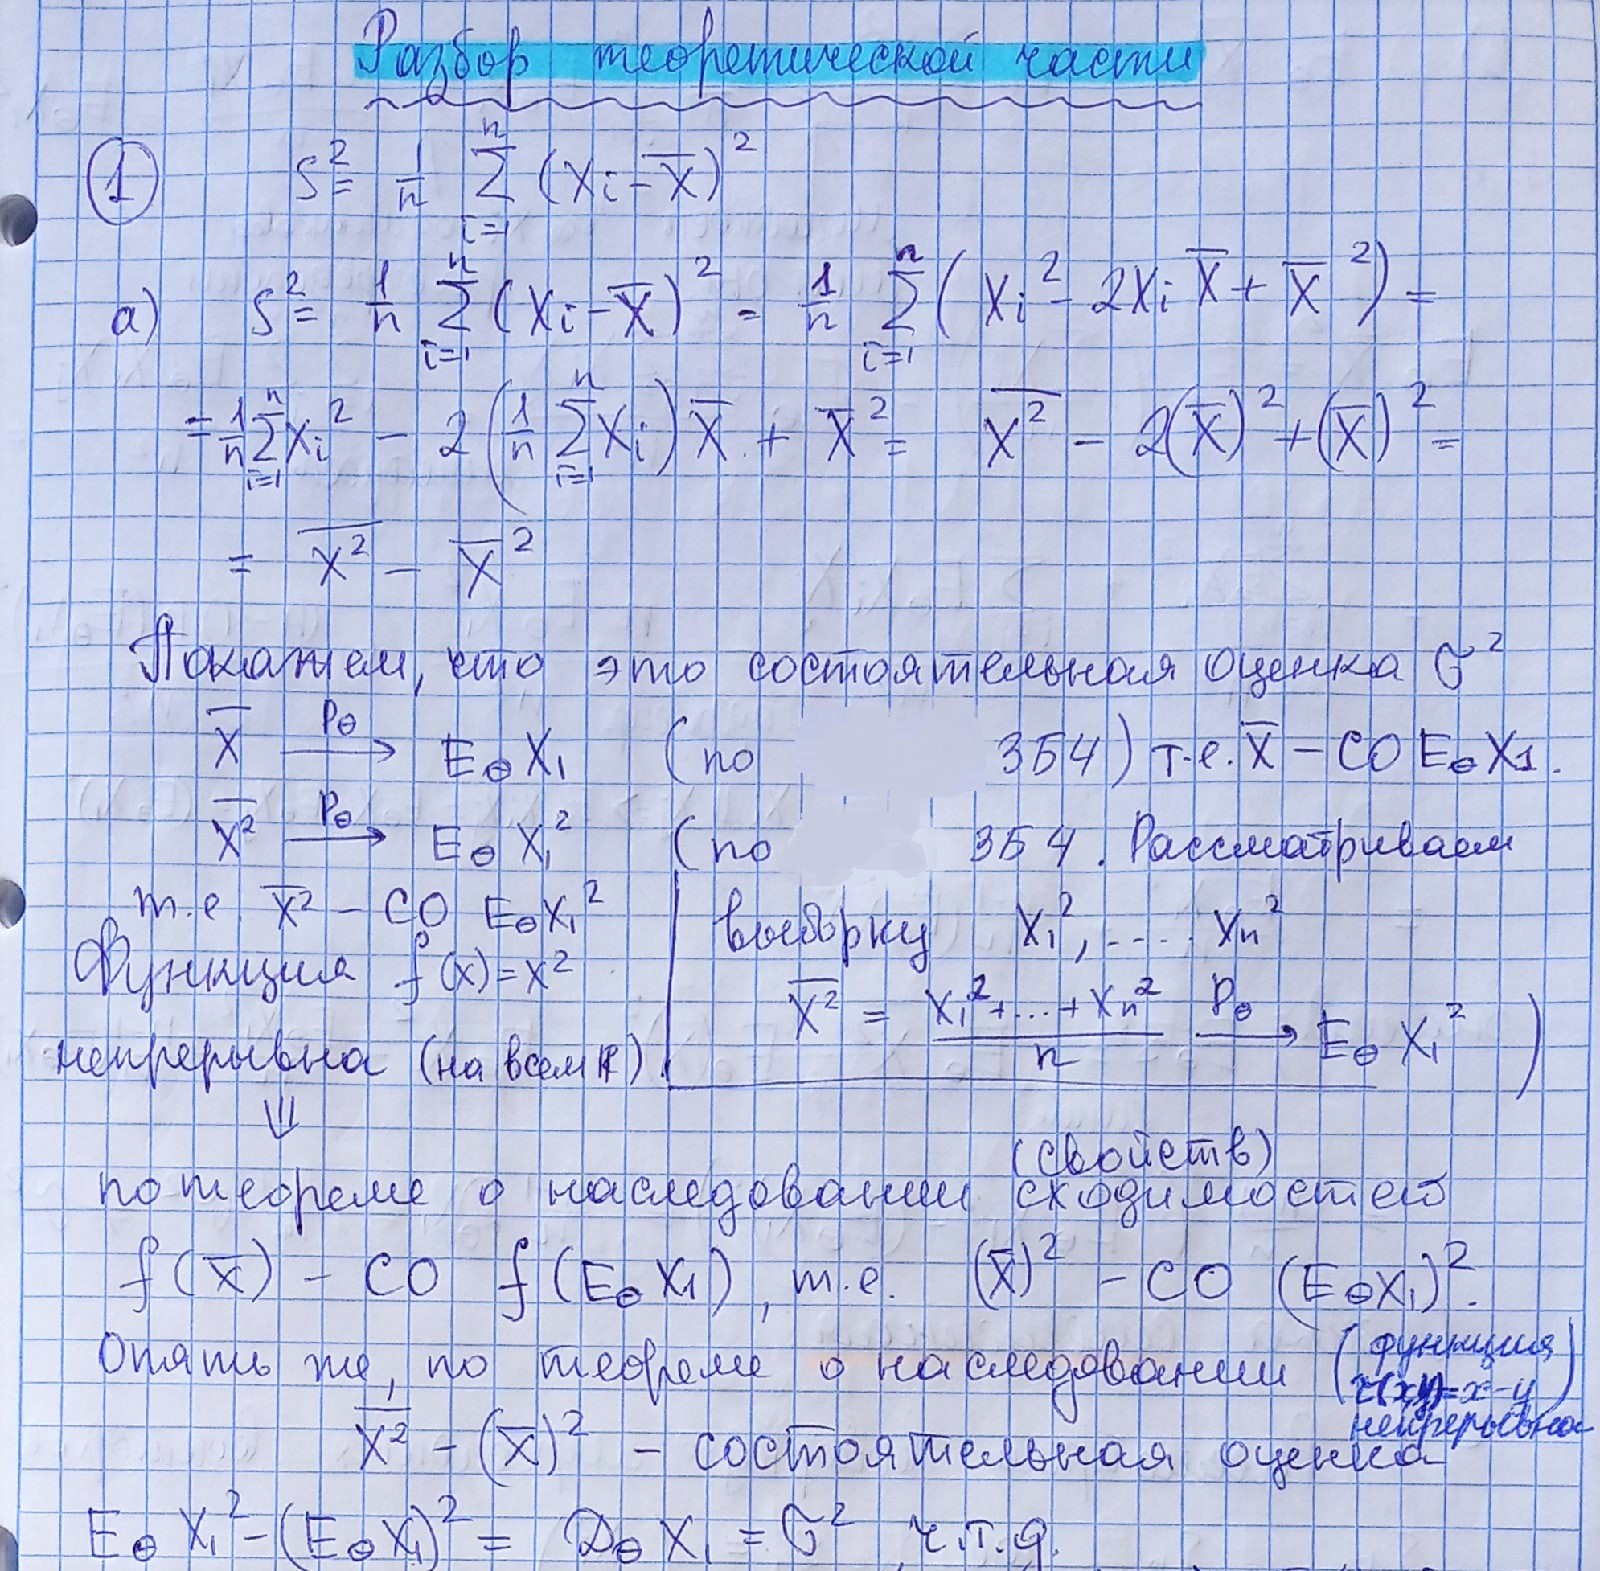 Разбор теоретической части
① S² = 1/n ∑_{i=1}^{n} (Xi − X̅)²
а) S² = 1/n ∑_{i=1}^{n} (Xi − X̅)² = 1/n ∑_{i=1}^{n} (Xi² − 2Xi X̅ + X̅²) =
= 1/n ∑_{i=1}^{n} Xi² − 2(1/n ∑_{i=1}^{n} Xi) X̅ + X̅² = \overline{X²} − 2(X̅)² + (X̅)² =
= \overline{X²} − X̅²
Покажем, что это состоятельная оценка σ²
X̅ \xrightarrow{Pθ} EθX₁ (по ЗБЧ) т.е. X̅ − СО EθX₁.
\overline{X²} \xrightarrow{Pθ} EθX₁² (по ЗБЧ. Рассматриваем
т.е. \overline{X²} − СО EθX₁²
выборку X₁², .... Xn²
\overline{X²} = (X₁² + ... + Xn²)/n \xrightarrow{Pθ} EθX₁² )
Функция f(x) = x²
непрерывна (на всем ℝ).
⇓
(свойств)
по теореме о наследовании сходимостей
f(X̅) − СО f(EθX₁), т.е. (X̅)² − СО (EθX₁)².
Опять же, по теореме о наследовании (функция
τ(x,y)=x−y
непрерывна)
\overline{X²} − (X̅)² − состоятельная оценка
EθX₁² − (EθX₁)² = DθX₁ = σ², ч.т.д.